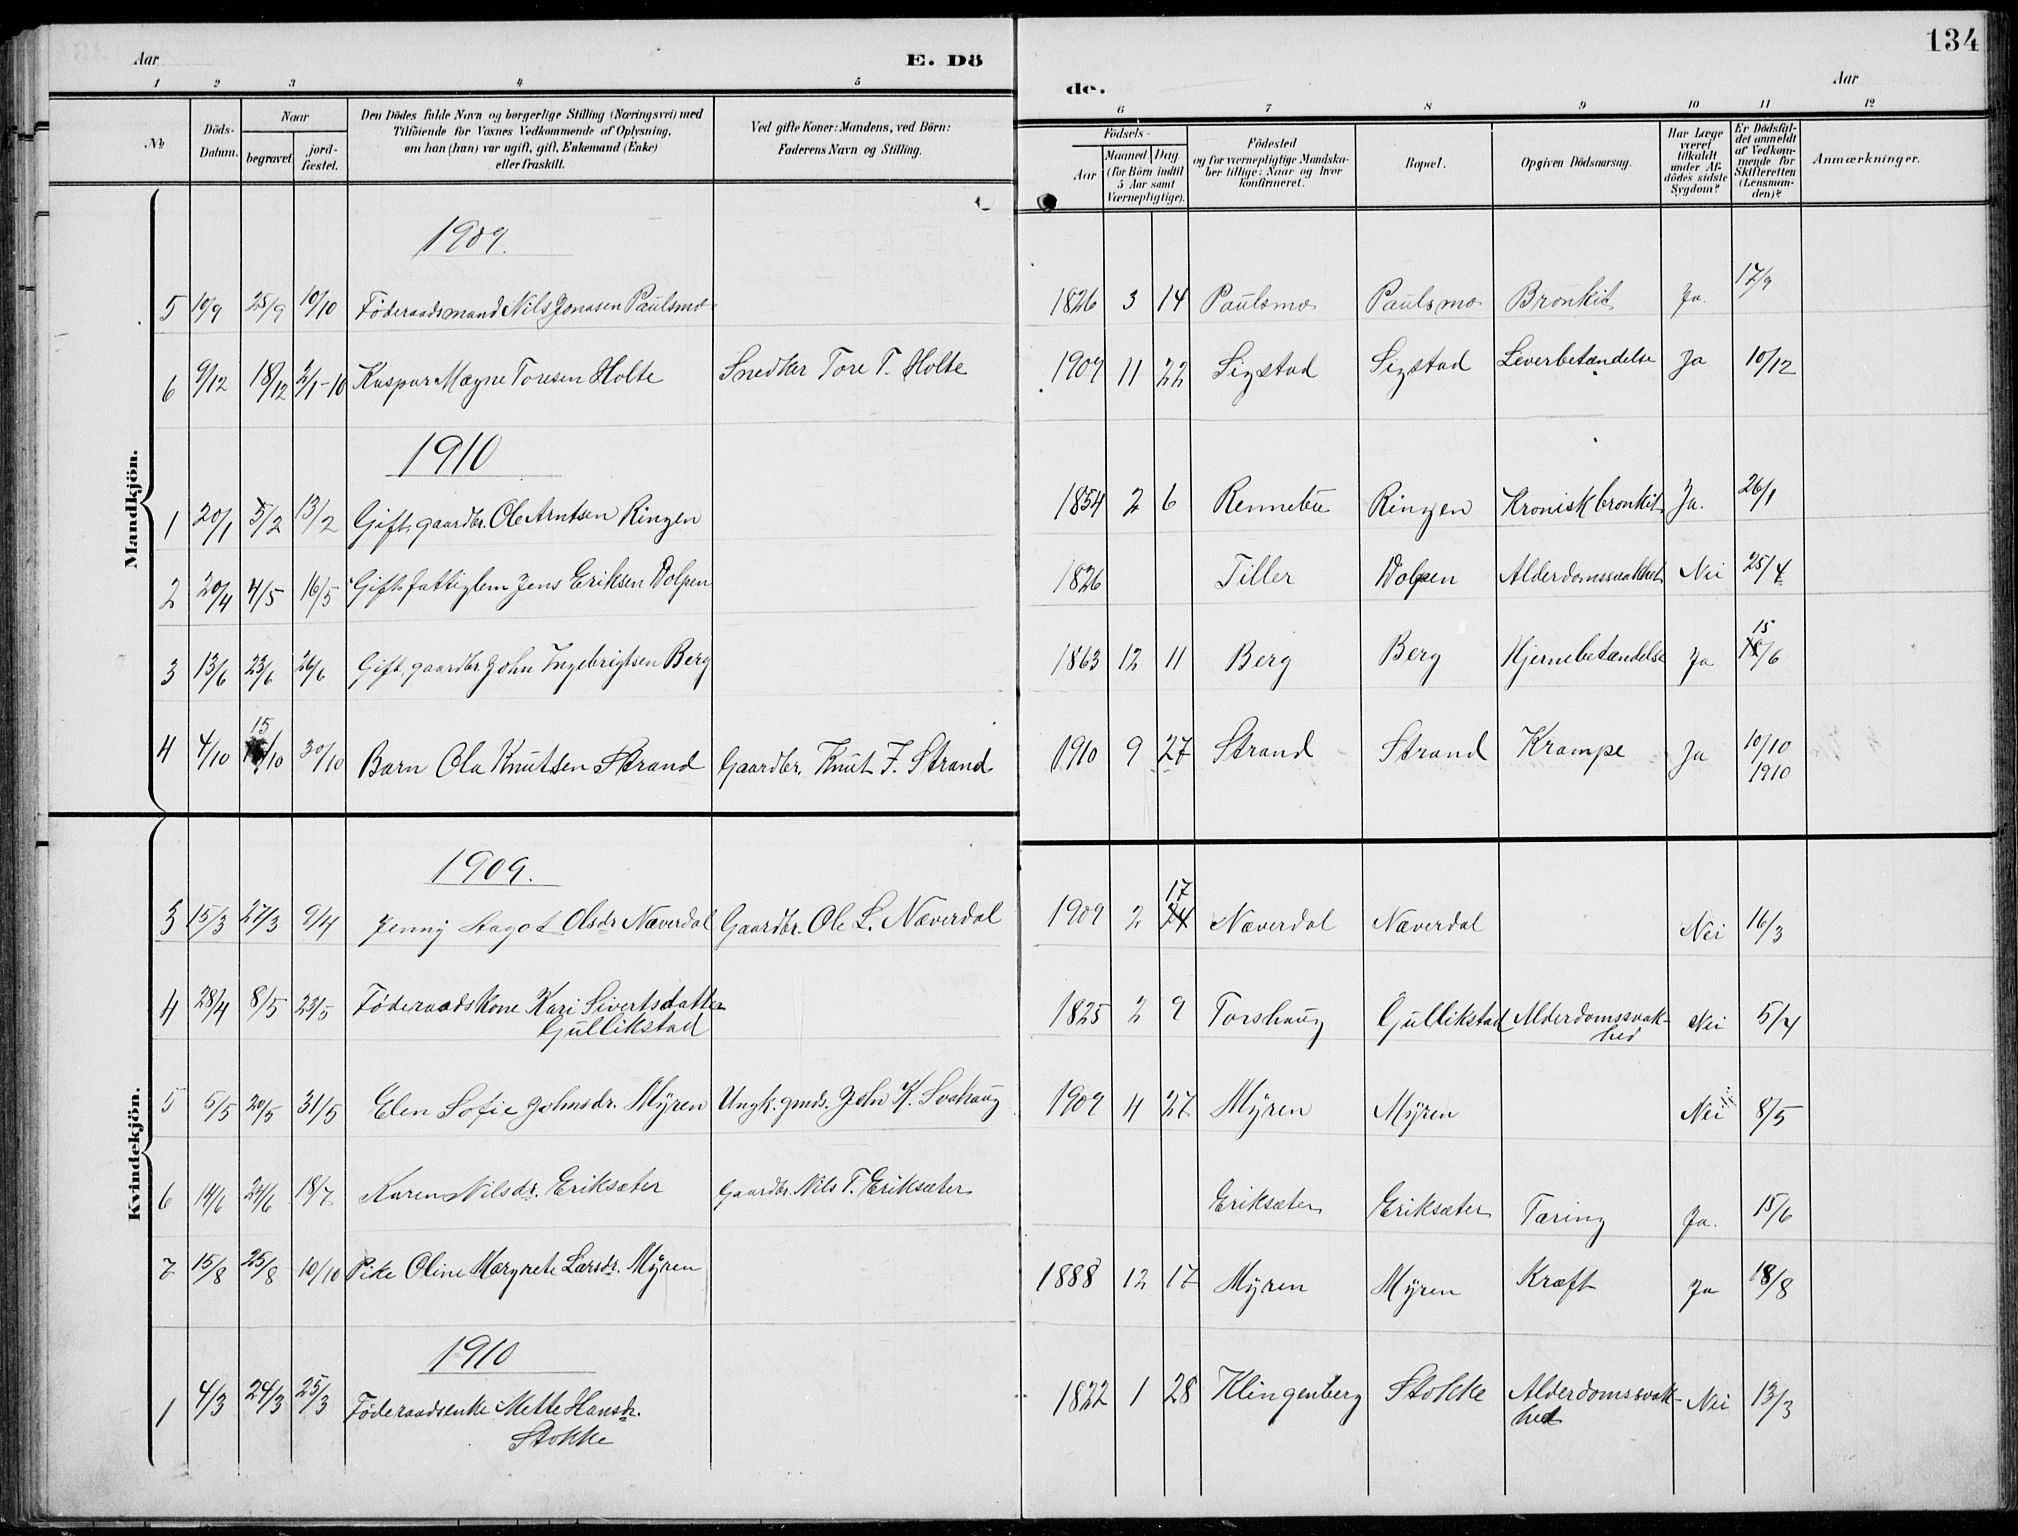 134
Aar
E. Dö
de.
Aar
1 2 3 4 5 6 7 8 9 10 11 12
№
Döds-
Datum.
Naar
begravet
jord-
fæstet.
Den Dödes fulde Navn og borgerlige Stilling (Næringsvei) med
Tilföiende for Voxnes Vedkommende af Oplysning,
om han (hun) var ugift, gift, Enkemand (Enke)
eller fraskilt.
Ved gifte Koner: Mandens, ved Börn:
Faderens Navn og Stilling.
Födsels-
Aar
Maaned Dag
(for Börn indtil
5 Aar samt
Værnepligtige).
Födested
og for værnepligtige Mandska-
ber tillige: Naar og hvor
konfirmeret.
Bopæl.
Opgiven Dödsaarsag.
Har Læge
været
tilkaldt
under Af-
dödes sidste
Sygdom?
Er Dödsfal-
det anmeldt
af Vedkom-
mende for
Skifteretten
(Lensman-
den)?
Anmærkninger.
Mandkjön.
1909.
5 10/9 25/9 10/10 Føderaadsmand Nils Jonasen Paulsmo 1826 3 14 Paulsmo Paulsmo Bronkit Ja. 17/9
6 9/12 18/12 2/1-10 Kaspar Magne Toresen Holte Snedker Tore T. Holte 1909 11 22 Sigstad Sigstad Leverbetændelse Ja 10/12
1910
1 20/1 5/2 13/2 Gift, gaardbr. Ole Arntsen Ringen 1854 2 6 Rennebu Ringen Kronisk bronkit Ja. 26/1
2 20/4 4/5 16/5 Gift fattiglem Jens Eriksen Dolpen 1826 Tiller Dolpen Alderdomssvakhet Nei 25/4
3 13/6 23/6 26/6 Gift, gaardbr. John Ingebrigtsen Berg 1863 12 11 Berg Berg Hjernebetændelse Ja 15/6
4 4/10 15/10 30/10 Barn Ola Knutsen Strand Gaardbr. Knut F. Strand 1910 9 27 Strand Strand Krampe Ja 10/10
1910
Kvindekjön.
1909.
3 15/3 27/3 9/4 Jenny Dagot Olsdr Næverdal Gaardbr. Ole L. Næverdal 1909 2 17 24 Næverdal Næverdal Nei 16/3
4 28/4 8/5 23/5 Føderaadskone Kari Sivertsdatter 1825 2 9 Torshaug Gullikstad Alderdomssvak- Nei 5/4
Gullikstad hed
5 5/5 20/5 31/5 Elen Sofie Johnsdr. Myren Ungk. gmds. John K. Svahaug 1909 4 27 Myren Myren Nei 8/5
6 14/6 24/6 18/7 Karen Nilsdr. Eriksæter Gaardbr. Nils T. Eriksæter Eriksæter Eriksæter Tæring Ja. 15/6
7 15/8 25/8 10/10 Pike Oline Margrete Larsdr. Myren 1888 12 17 Myren Myren Kræft Ja 18/8
1910
1 4/3 24/3 25/3 Føderaadsenke Mette Hansdr. 1822 1 28 Klingenberg Stokke Alderdomssvak- Nei 13/3
Stokke hed